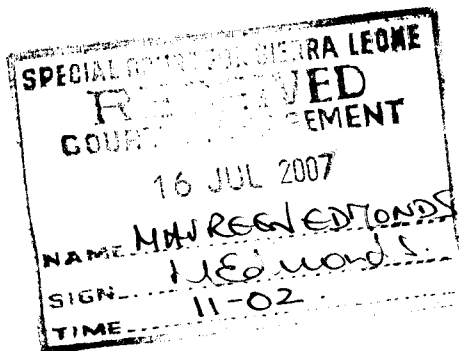 SPECIAL COURT FOR SIERRA LEONE
RECEIVED
COURT MANAGEMENT
16 JUL 2007
NAME MAUREEN EDMONDS
SIGN MEdmonds.
TIME 11-02.